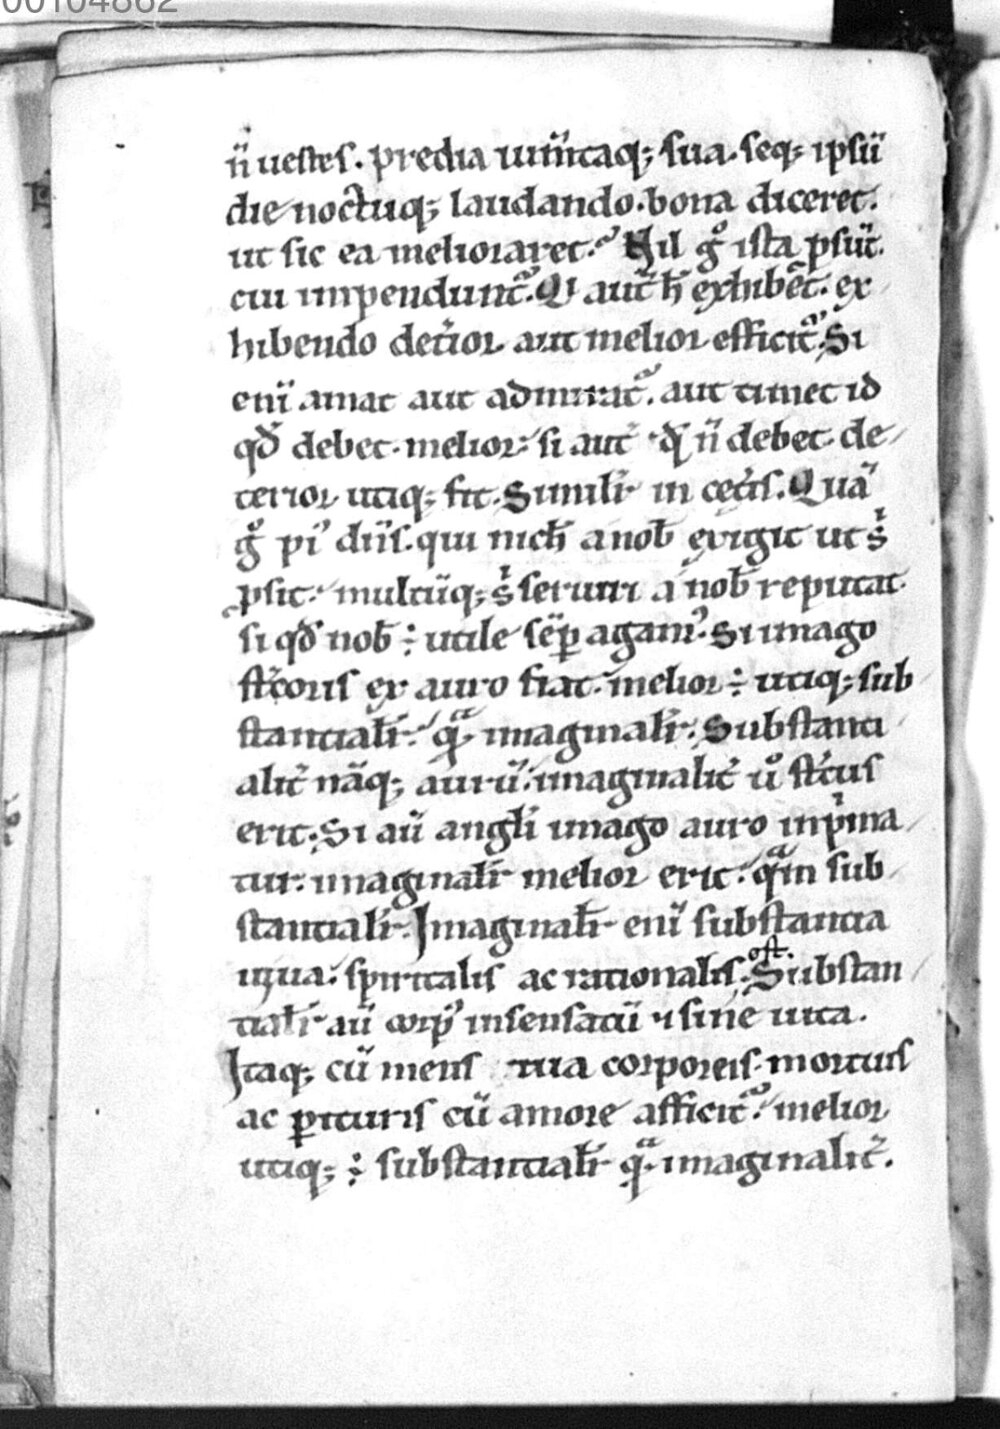 00104862
n̄ uestes. predia uim̄taq; sua. seq; ipsū
die noctuq; laudando. bona diceret.
ut sic ea melioraret. Nil gͦ ista ꝓsūt.
cui impendunt᷑. Qi aut̄ h̄ exhibēt. ex
hibendo det̾ior aut melior efficit᷑. Si
enī amat aut admirat᷑. aut timet id
qđ debet. melior. si aut̄ qđ n̄ debet. de
terior utiq; fit. Similit̾ in cet̾is. Quā
gͦ piꝰ dn̄s. qui nich̄ a nob̄ exigit ut sⁱ
ꝓsit. multūq; sⁱ seruiri a nob̄ reputat.
si qđ nob̄ ÷ utile sēꝑ agamꝰ. Si imago
st̾coris ex auro fiat. melior ÷ utiq; sub
stantialit̾. qᵃ̄ imaginalit̾. Substanti
alit̾ nāq; aurū. imaginalit̾ uͦ st̾cus
erit. Si aū angl̄i imago auro inpⁱma
tur. imaginalit̾ melior erit. qᵃm sub
stantialit̾. Imaginalit̾ enī substantia
uiua. spiritalis ac rationalis. ost̄. Substan
tialit̾ aū corpꝰ insensatū ⁊ sine uita.
Itaq; cū mens tua corporeis. mortuis
ac ꝑituris cū amore afficit᷑. melior
utiq; ÷ substantialit̾ qᵃ̄ imaginalit̾.